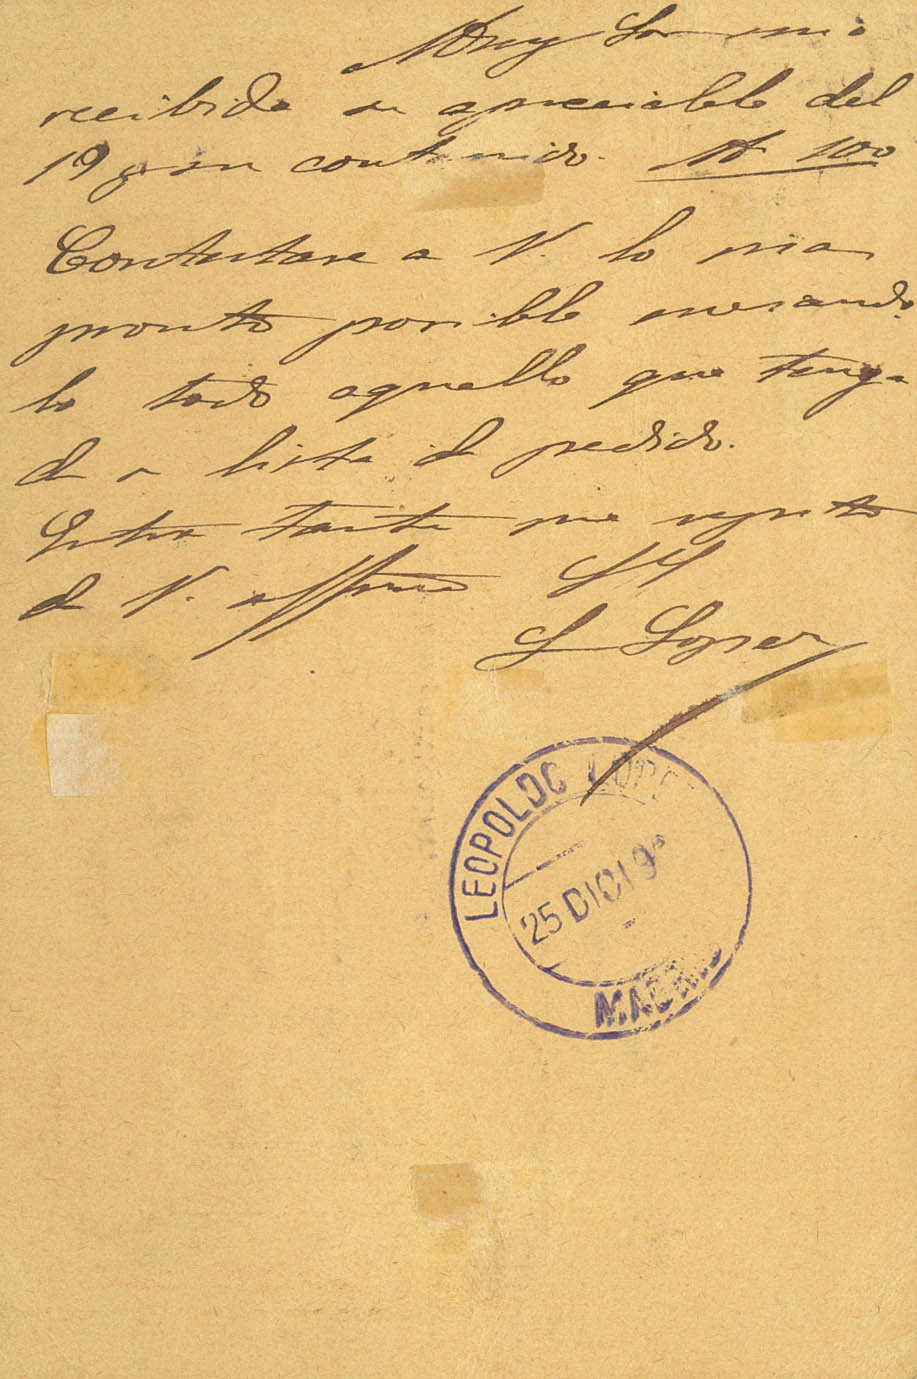 Muy Sr mio
recibida su apreciable del
19 y su contenido. Nº 100
Contestare a V. lo mas
pronto posible
lo todo aquello que tenga
de su lista de pedido.
Entre tanto me repito
de V. affmo SS
L Lopez
LEOPOLDO LOPEZ
25 DIC 19
MADRID